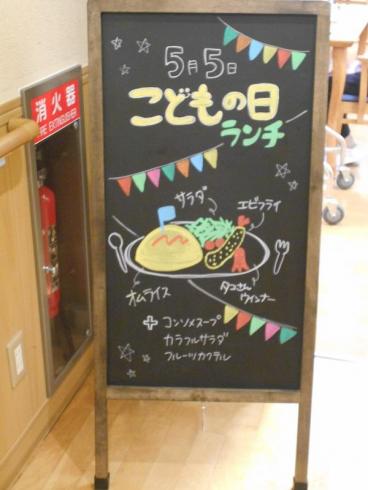 5月5日
こどもの日
ランチ
サラダ
エビフライ
オムライス
タコさん
ウインナー
+ コンソメスープ
カラフルサラダ
フルーツカクテル
消火器
FIRE EXTINGUISHER